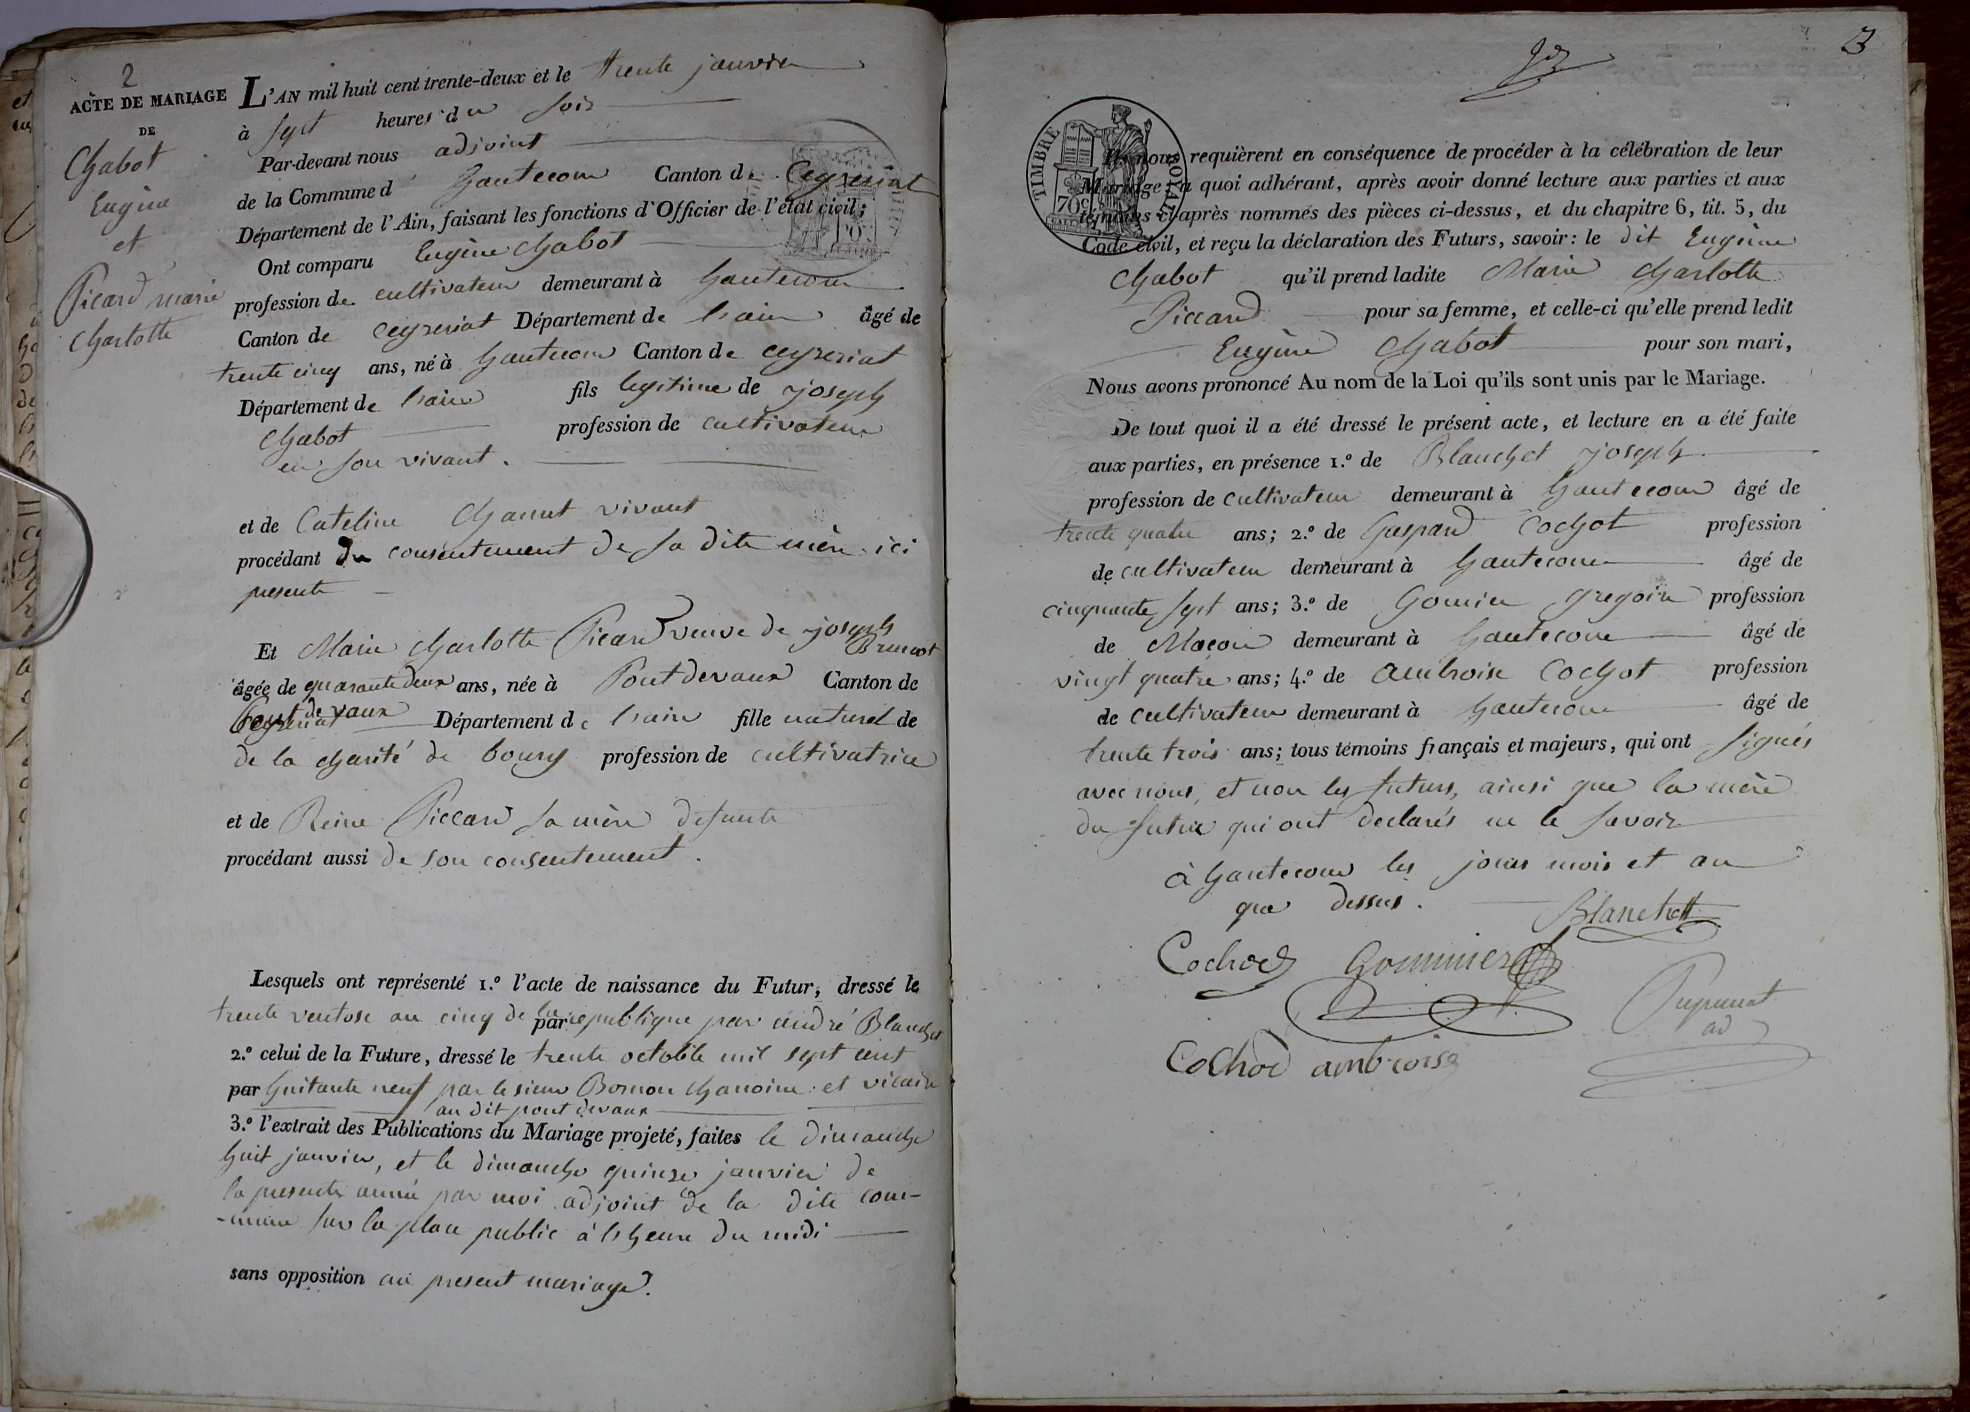 2
ACTE DE MARIAGE
DE
Chabot
Eugène
et
Picard marie
Charlotte
L'AN mil huit cent trente-deux et le trente janvier
à sept heures du soir
Par-devant nous adjoint
de la Commune d hautecour Canton de Ceyzeriat
Département de l'Ain, faisant les fonctions d'Officier de l'état civil;
Ont comparu Eugène Chabot
profession de cultivateur demeurant à hautecour
Canton de ceyzeriat Département de l'ain âgé de
trente cinq ans, né à hautecour Canton de ceyzeriat
Département de l'ain fils legitime de joseph
Chabot profession de cultivateur
en son vivant.
et de Cateline Chanut vivant
procédant du consentement de sa dite mère ici
presente
Et Marie Charlotte Picard veuve de joseph
Brunet
âgée de quarante deux ans, née à Pontdevaux Canton de
Pont de vaux Département de l'ain fille naturel de
de la charité de bourg profession de cultivatrice
et de Reine Piccard sa mère defunte
procédant aussi de son consentement.
Lesquels ont représenté 1.º l'acte de naissance du Futur, dressé le
trente ventose an cinq de la par republique par andré Blanchet
2.º celui de la Future, dressé le trente octobre mil sept cent
par huitante neuf par le sieur Bornon chanoine et vicaire
au dit pont devaux
3.º l'extrait des Publications du Mariage projeté, faites le dimanche
huit janvier, et le dimanche quinze janvier de
la presente année par moi adjoint de la dite com-
-mune sur la place public à l'heure du midi
sans opposition au present mariage.
3
TIMBRE ROYAL
70c
Ils nous requièrent en conséquence de procéder à la célébration de leur
Mariage; à quoi adhérant, après avoir donné lecture aux parties et aux
témoins ci-après nommés des pièces ci-dessus, et du chapitre 6, tit. 5, du
Code civil, et reçu la déclaration des Futurs, savoir: le dit Eugène
Chabot qu'il prend ladite Marie Charlotte
Piccard pour sa femme, et celle-ci qu'elle prend ledit
Eugène Chabot pour son mari,
Nous avons prononcé Au nom de la Loi qu'ils sont unis par le Mariage.
De tout quoi il a été dressé le présent acte, et lecture en a été faite
aux parties, en présence 1.º de Blanchet joseph
profession de cultivateur demeurant à hautecour âgé de
trente quatre ans; 2.º de Gaspard Cochot profession
de cultivateur demeurant à hautecour âgé de
cinquante sept ans; 3.º de Gomier gregoire profession
de Maçon demeurant à hautecour âgé de
vingt quatre ans; 4.º de ambroise Cochot profession
de cultivateur demeurant à hautecour âgé de
trente trois ans; tous témoins français et majeurs, qui ont signés
avec nous, et non les futurs, ainsi que la mère
du futur qui ont declarés ne le savoir
à hautecour les jours mois et an
que dessus.
Blanchett
Cochod Gommier
ad
Cochod ambroise